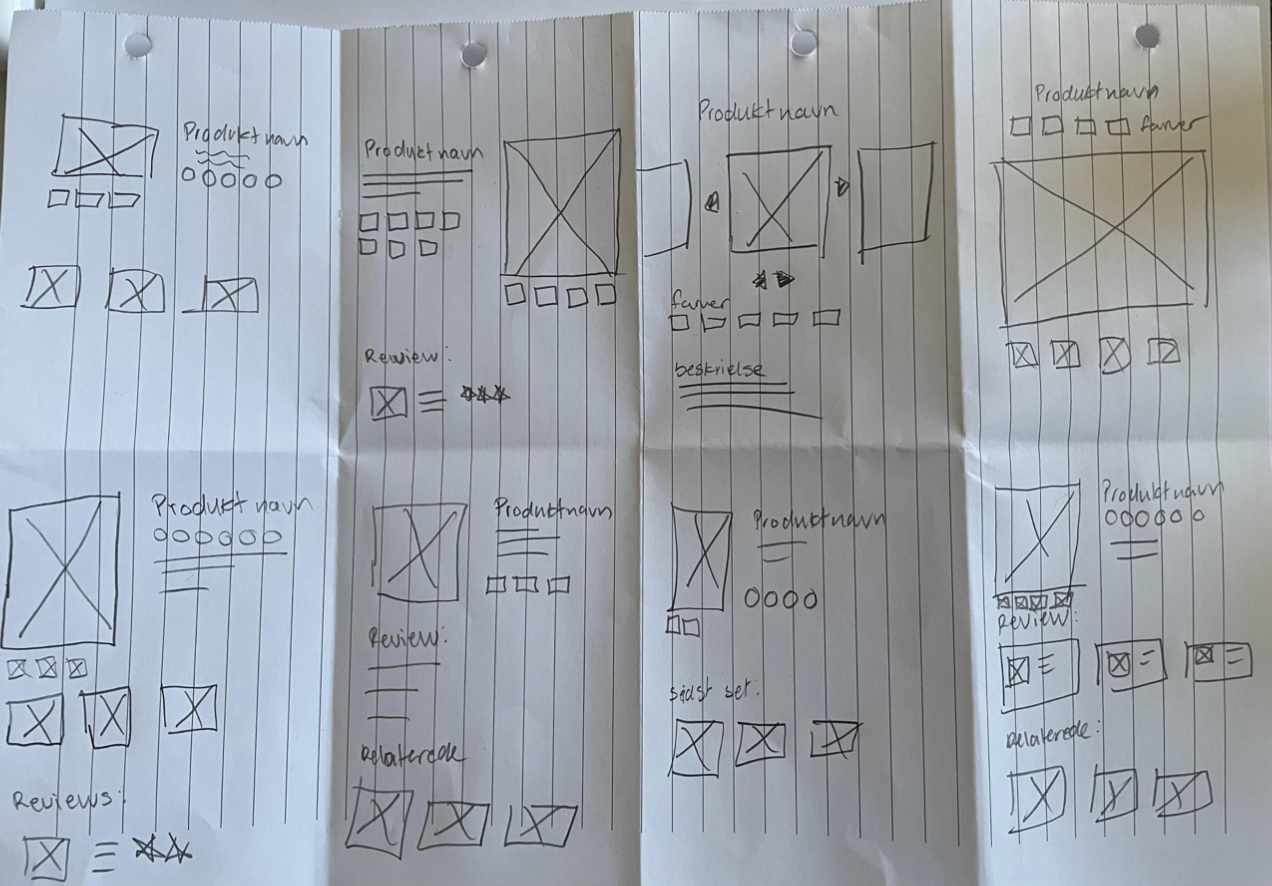 Produktnavn
Produktnavn
Rewiew:
Produktnavn
farver
beskrielse
Produktnavn
farver
Produktnavn
Reviews:
Produktnavn
Review:
Relaterede
Produktnavn
sidst set:
Produktnavn
Review:
Relaterede: